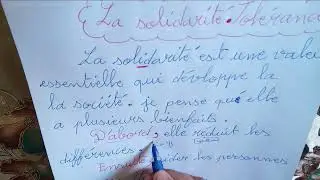 La solidarité. Tolérance
La solidarité est une vale
essentielle qui dévloppe la
la société. je pense que elle
a plusieurs bienfaits.
D'abord, elle réduit les
différences.
Ensuite aider les personnes